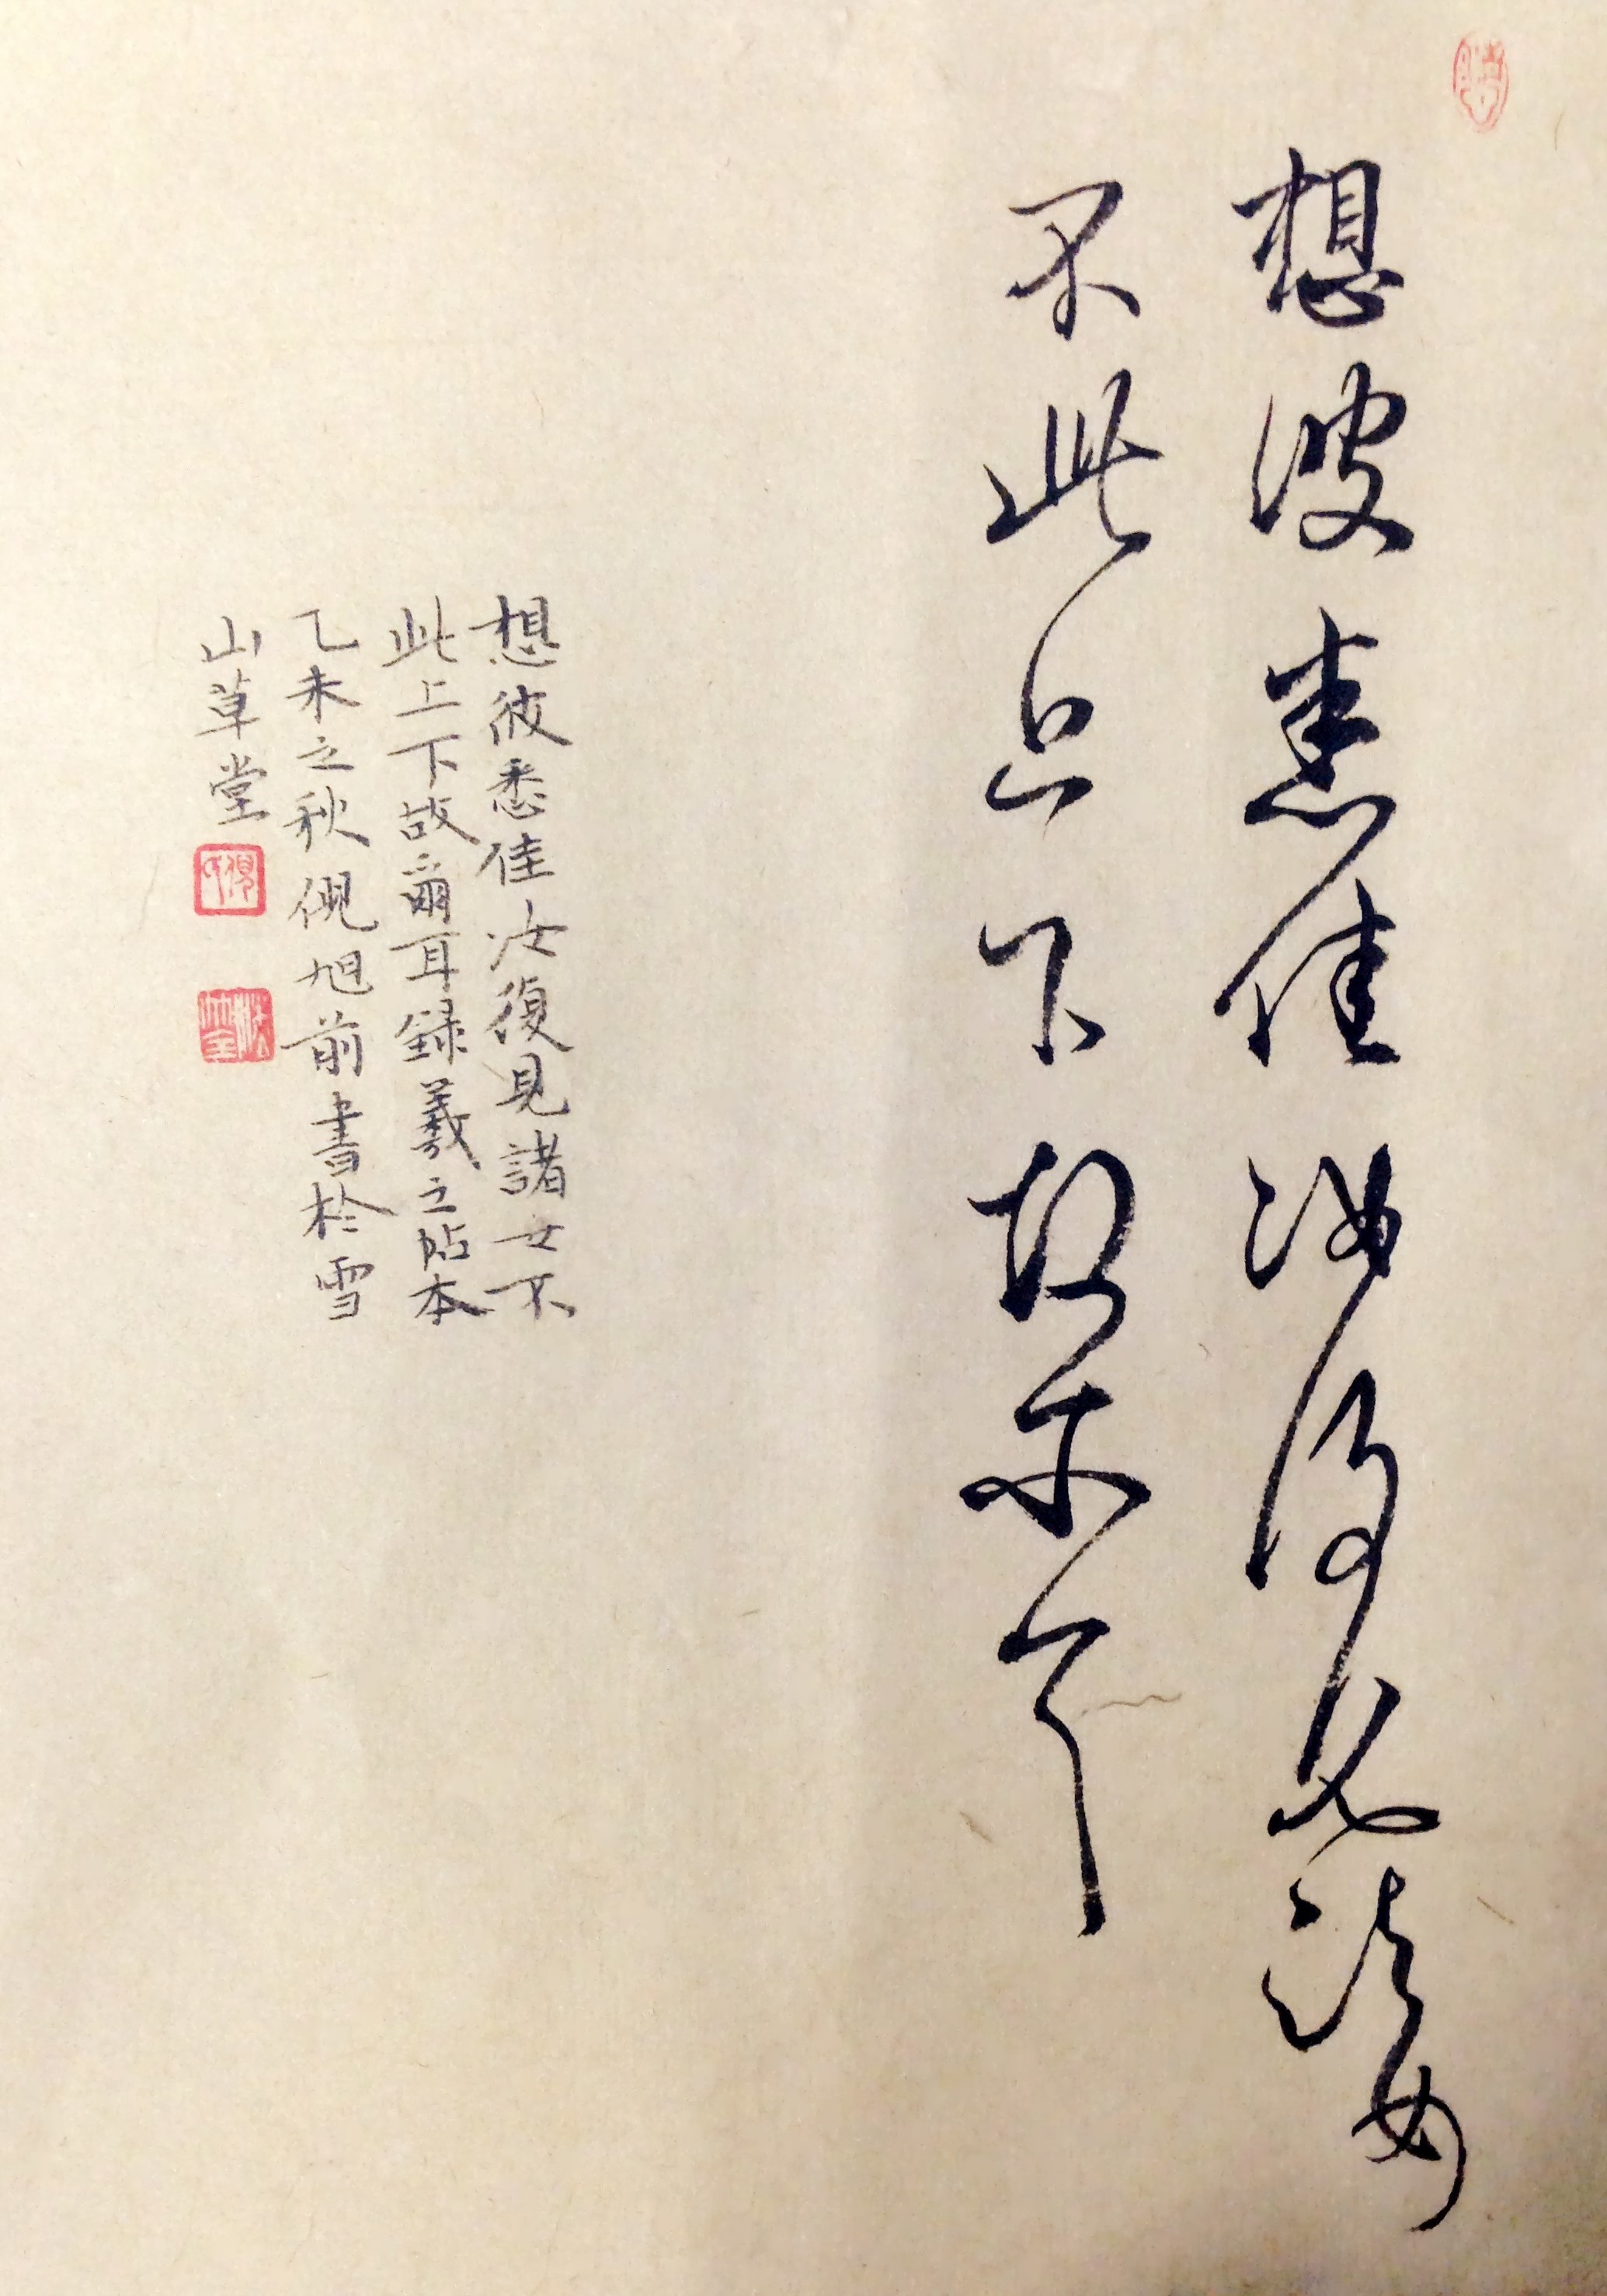 想彼悉佳汝復見諸女
不此上下故爾耳
想彼悉佳汝復見諸女不
此上下故爾耳録羲之帖本
乙未之秋倪旭前書於雪
山草堂